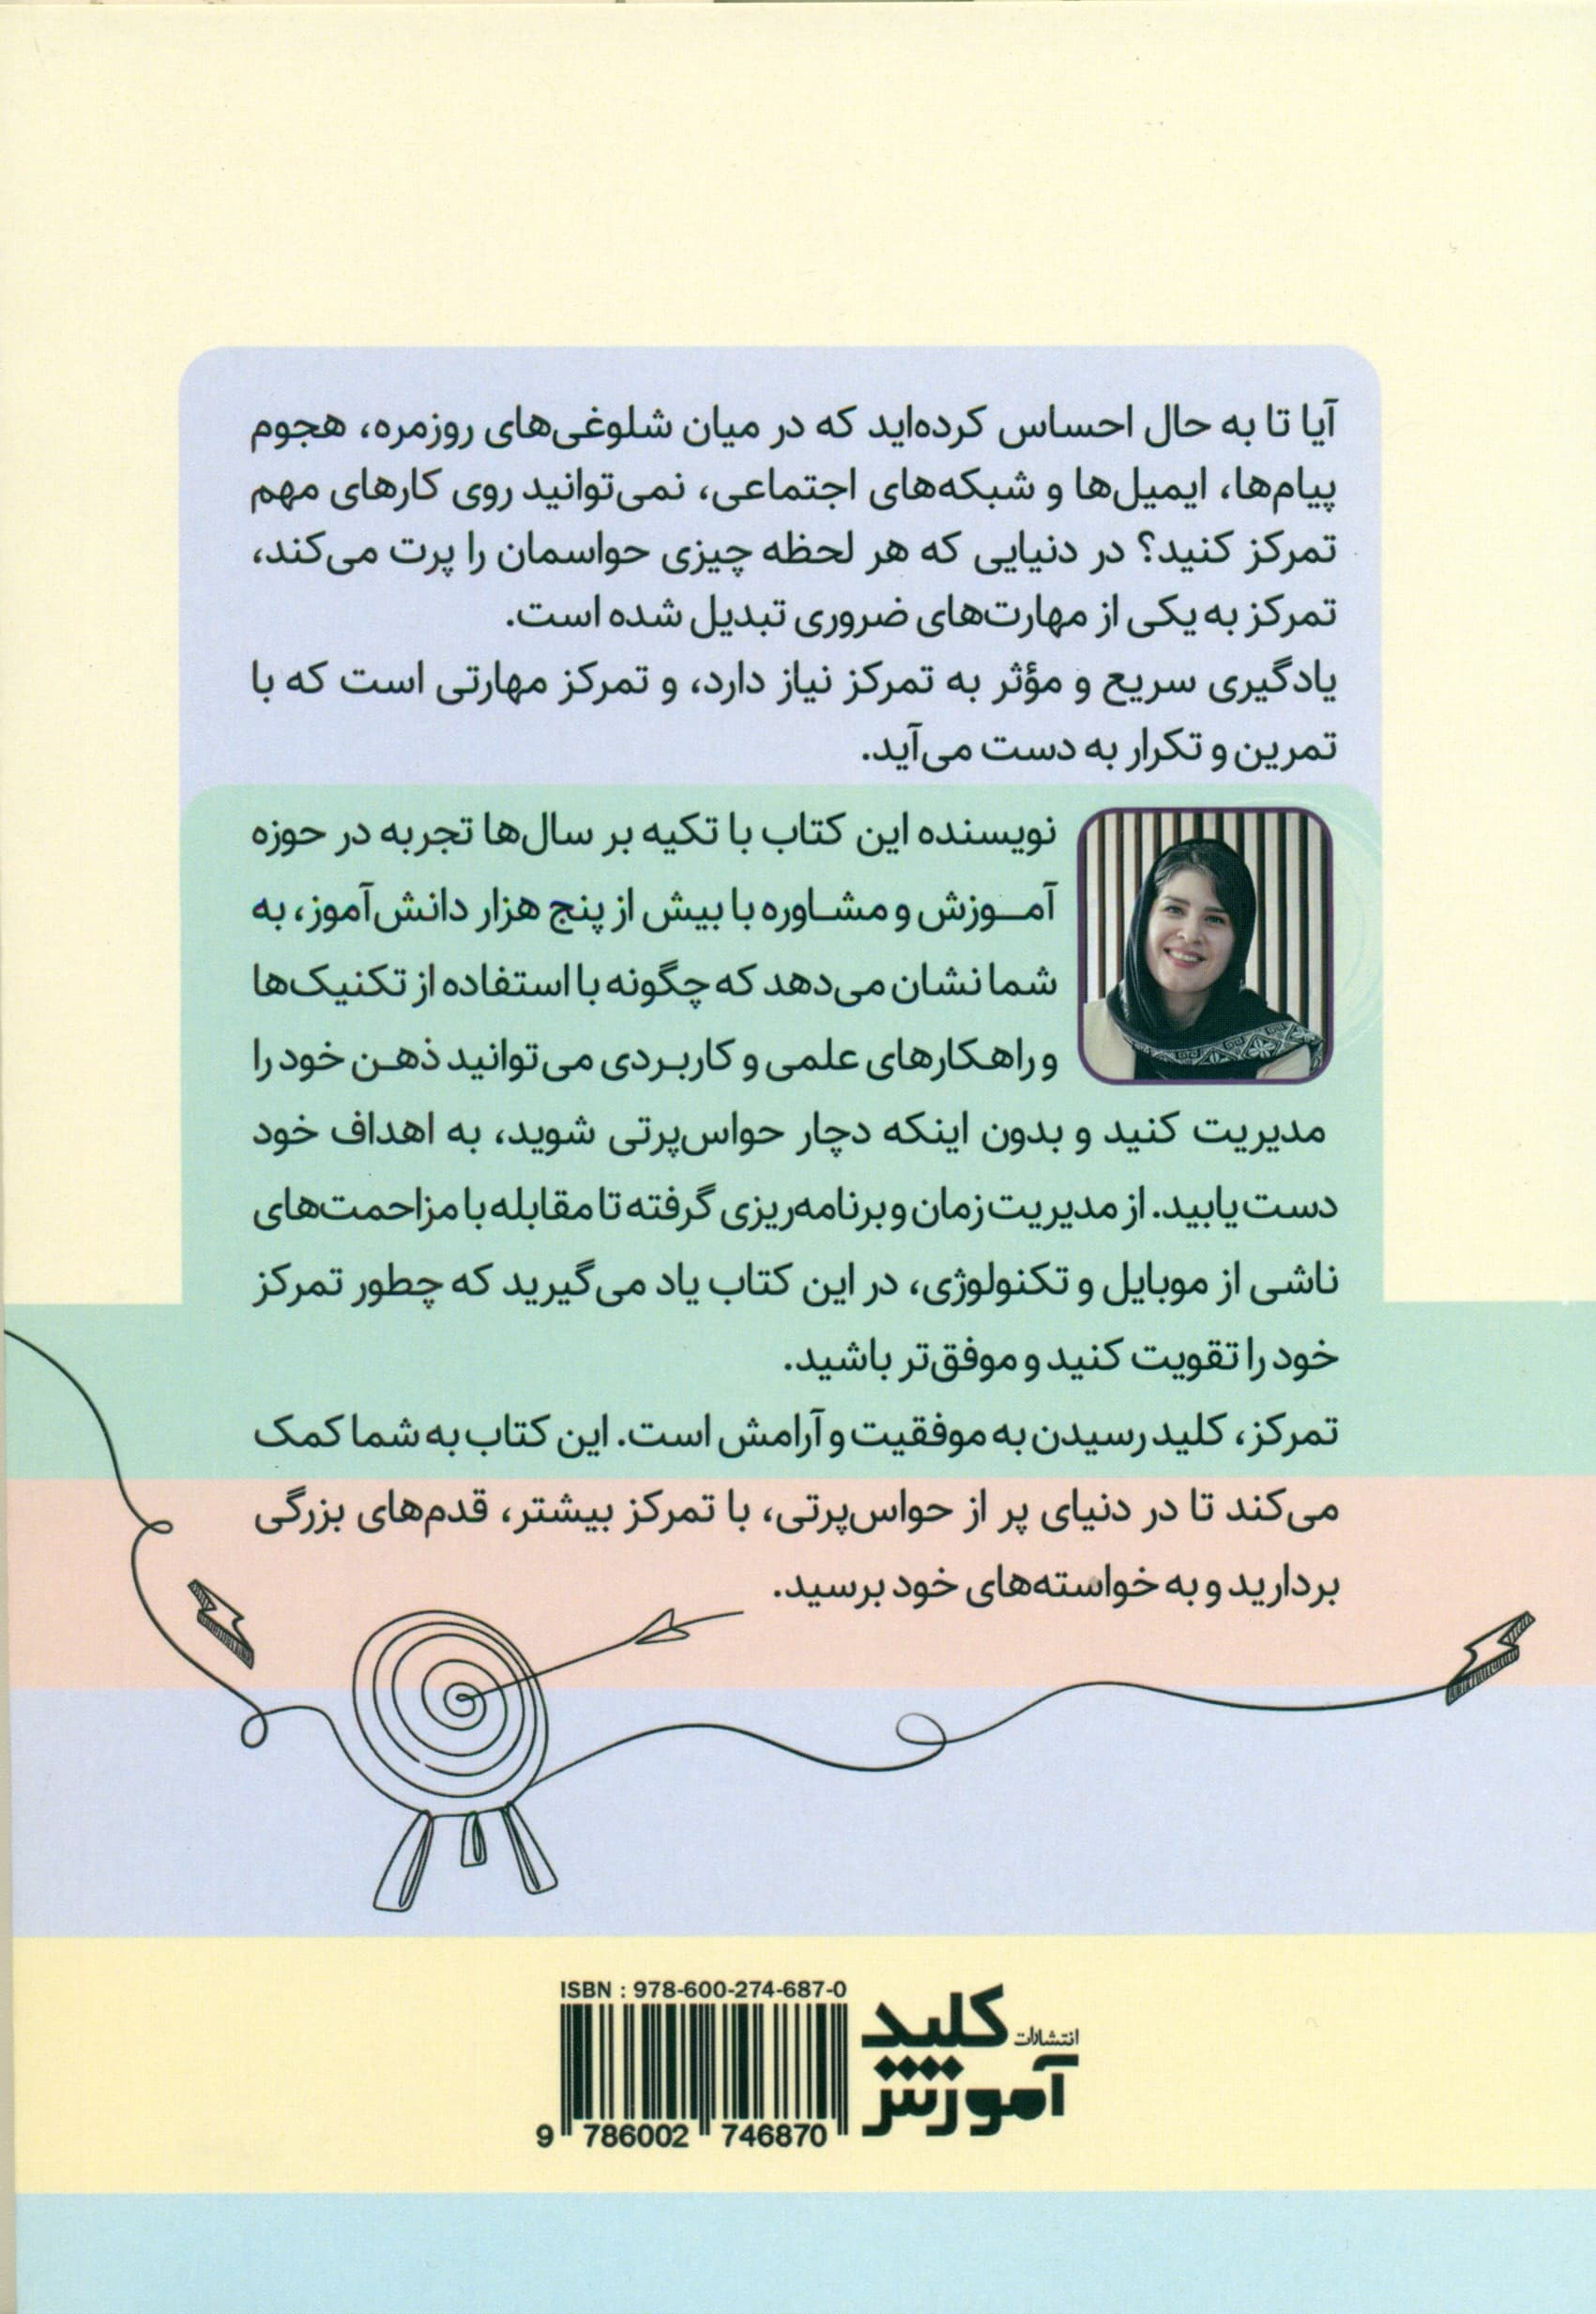 آیا تا به حال احساس کرده‌اید که در میان شلوغی‌های روزمره، هجوم
پیام‌ها، ایمیل‌ها و شبکه‌های اجتماعی، نمی‌توانید روی کارهای مهم
تمرکز کنید؟ در دنیایی که هر لحظه چیزی حواسمان را پرت می‌کند،
تمرکز به یکی از مهارت‌های ضروری تبدیل شده است.
یادگیری سریع و مؤثر به تمرکز نیاز دارد، و تمرکز مهارتی است که با
تمرین و تکرار به دست می‌آید.
نویسنده این کتاب با تکیه بر سال‌ها تجربه در حوزه
آمـــوزش و مشــاوره با بیش از پنج هزار دانش‌آموز، به
شما نشان می‌دهد که چگونه با استفاده از تکنیک‌ها
و راهـکارهای علمی و کاربـردی می‌توانید ذهـن خود را
مدیریت کنید و بدون اینکه دچار حواس‌پرتی شوید، به اهداف خود
دست یابید. از مدیریت زمان و برنامه‌ریزی گرفته تا مقابله با مزاحمت‌های
ناشی از موبایل و تکنولوژی، در این کتاب یاد می‌گیرید که چطور تمرکز
خود را تقویت کنید و موفق‌تر باشید.
تمرکز، کلید رسیدن به موفقیت و آرامش است. این کتاب به شما کمک
می‌کند تا در دنیای پر از حواس‌پرتی، با تمرکز بیشتر، قدم‌های بزرگی
بردارید و به خواسته‌های خود برسید.
انتشارات
کلید
آموزش
ISBN : 978-600-274-687-0
9 786002 746870